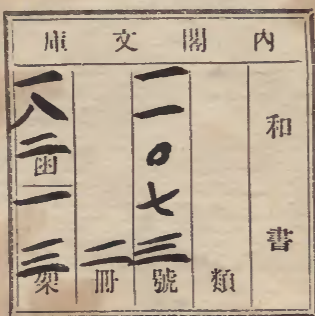 內閣文庫
和書
類
一一〇七三號
二冊
一八二函
一三架